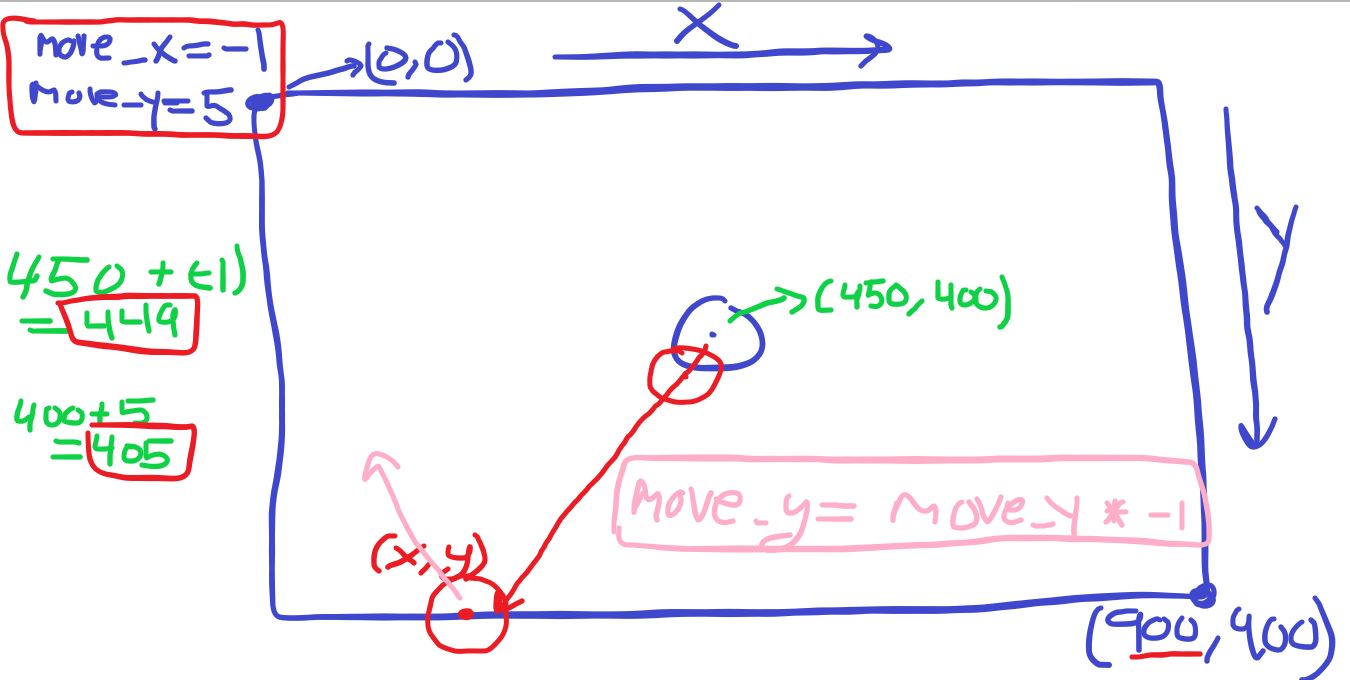 move_x = -1
move_y = 5
(0,0)
X
Y
450 + (-1)
= 449
(450, 400)
400+5
= 405
move_y = move_y * -1
(x,y)
(900, 400)